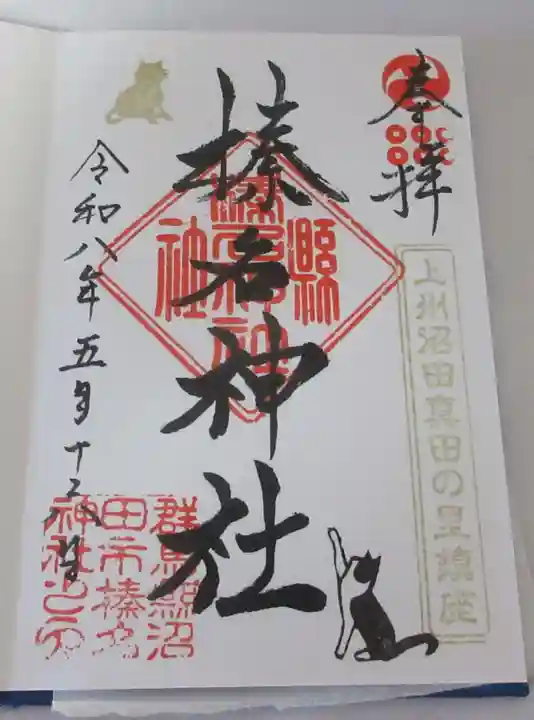 奉拝
上州沼田真田の里鎮座
榛名神社
縣社
令和八年五月十二日
群馬縣沼
田市榛名
神社之印